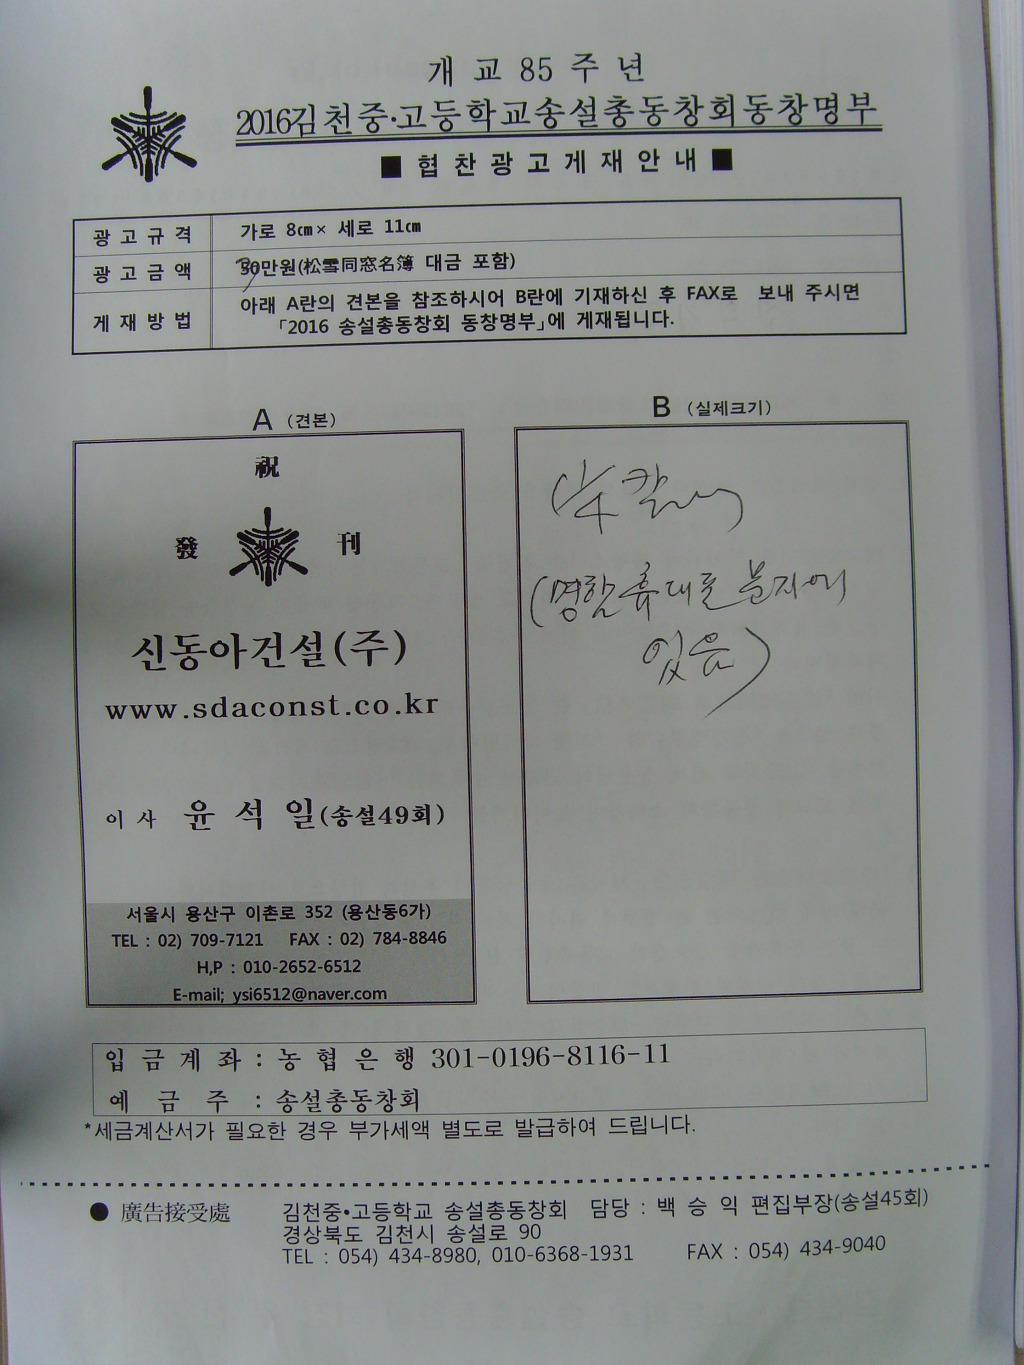 개교 85주년
2016김천중·고등학교송설총동창회동창명부
■ 협찬광고게재안내 ■
광고규격 가로 8㎝× 세로 11㎝
광고금액 30만원(松雪同窓名簿 대금 포함)
게재방법 아래 A란의 견본을 참조하시어 B란에 기재하신 후 FAX로 보내 주시면
「2016 송설총동창회 동창명부」에 게재됩니다.
A (견본)
祝
發 刊
신동아건설(주)
www.sdaconst.co.kr
이사 윤석일(송설49회)
서울시 용산구 이촌로 352 (용산동6가)
TEL : 02) 709-7121 FAX : 02) 784-8846
H,P : 010-2652-6512
E-mail; ysi6512@naver.com
B (실제크기)
(명함 휴대폰 문자에
있음)
입금계좌 : 농협은행 301-0196-8116-11
예금주 : 송설총동창회
*세금계산서가 필요한 경우 부가세액 별도로 발급하여 드립니다.
● 廣告接受處 김천중•고등학교 송설총동창회 담당 : 백승익 편집부장(송설45회)
경상북도 김천시 송설로 90
TEL : 054) 434-8980, 010-6368-1931 FAX : 054) 434-9040